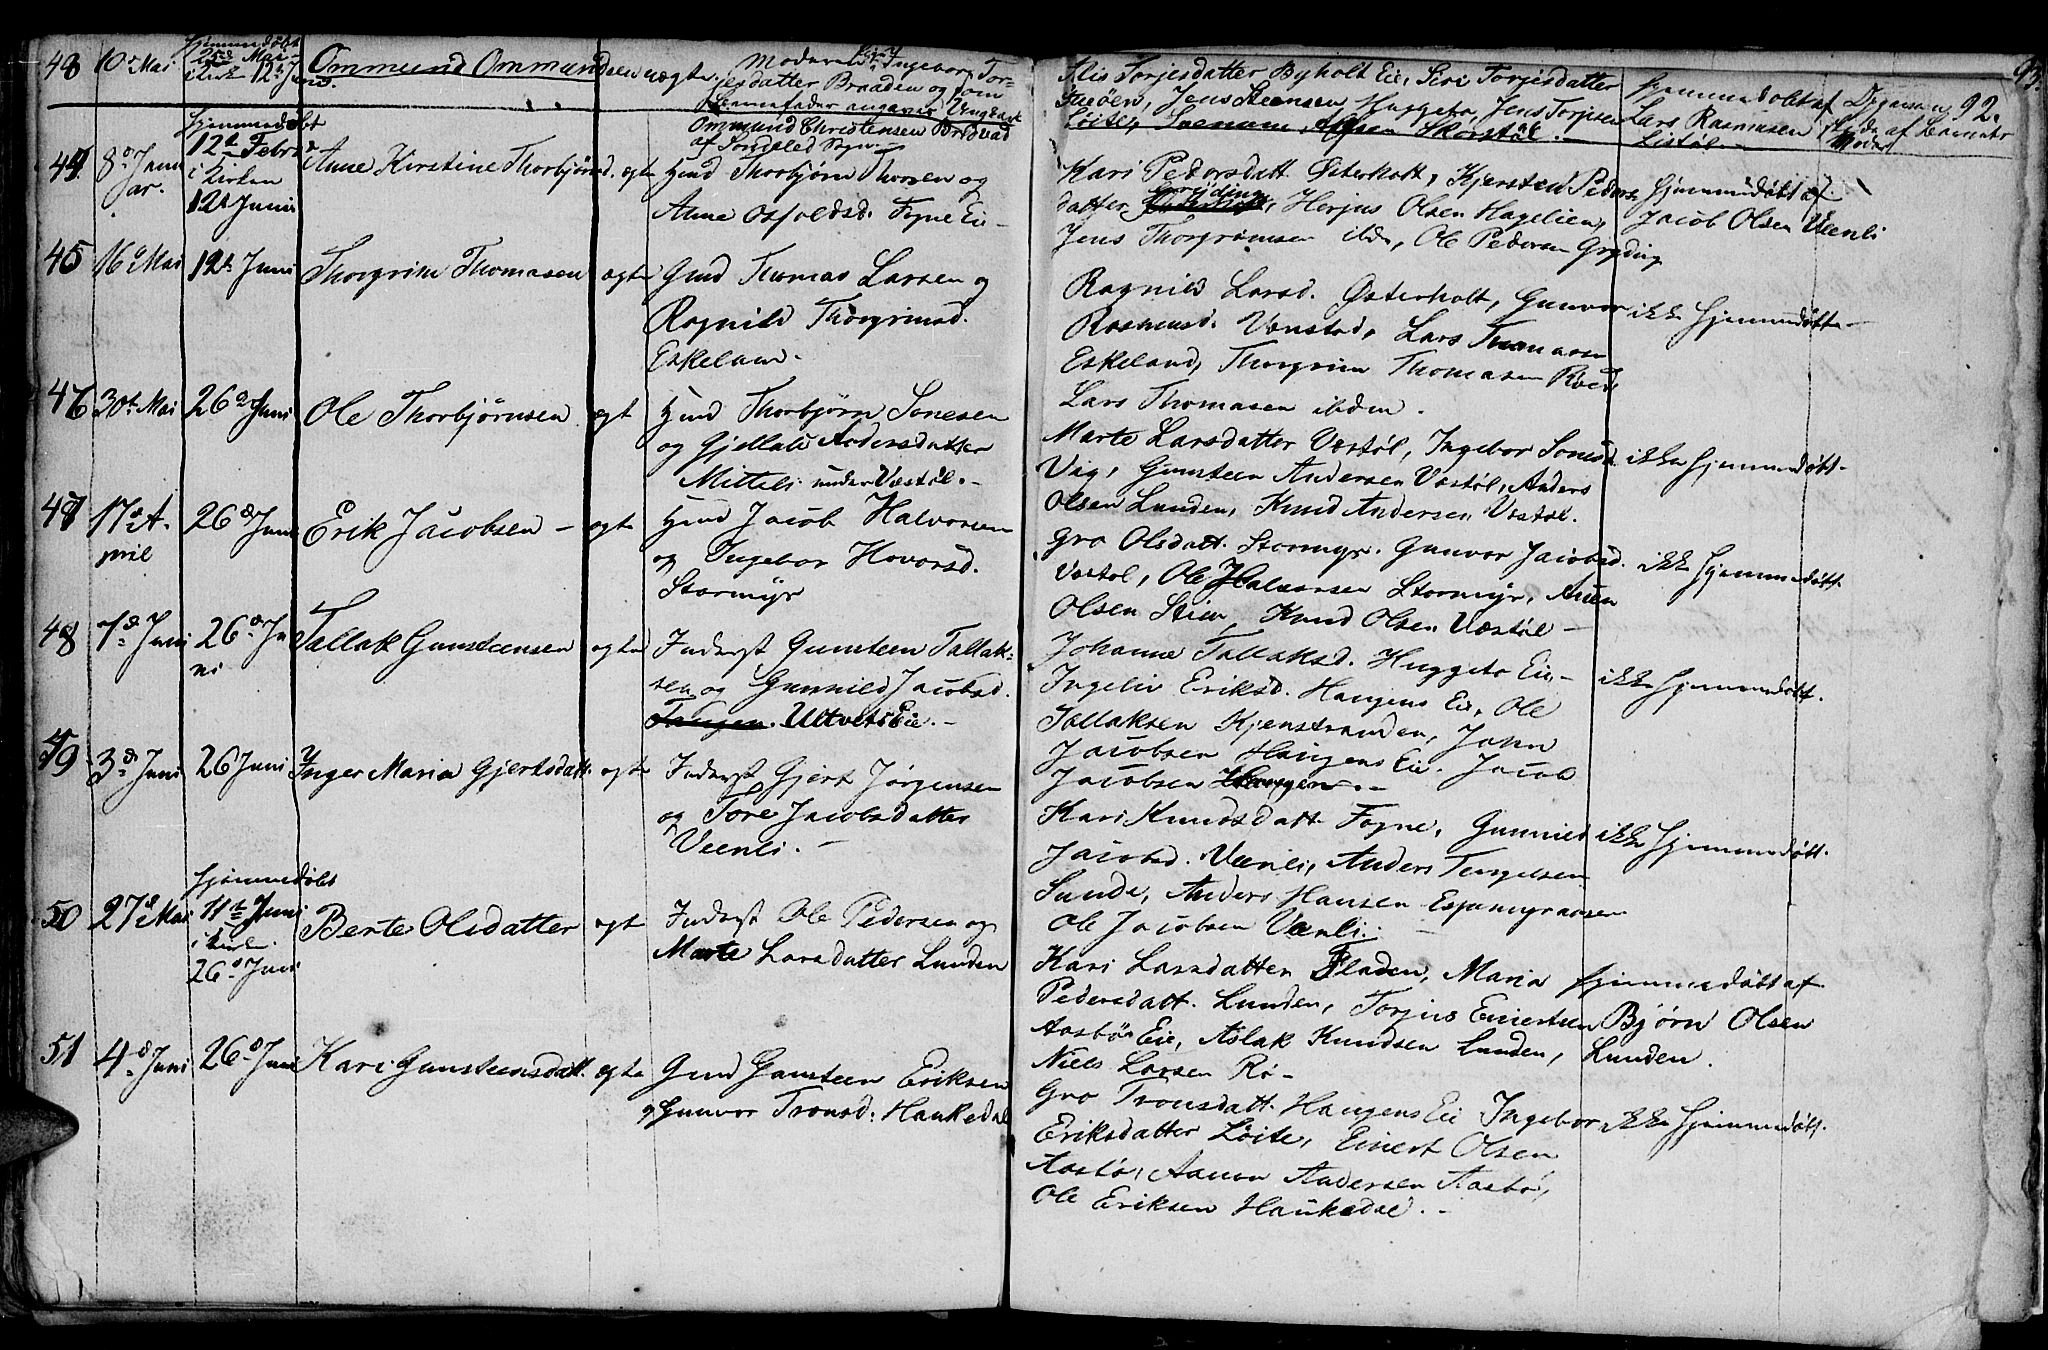 43 10de Mai hjemmedøbt 25de Mai i kirk 12te Juni Ommund Ommundsen uægte Moderen Ingebor Tor-
jesdatter Braaden og som
Barnefader angaves Ungkarl
Ommund Christensen Brødvad
af Søndeled Sogn
Alis Torjesdatter Byholt Eie, Siri Torjesdatter
Jens Steensen Huggeto, Jens Torjesen
Løite,
hjemmedøbt af
Lars Rasmusen
Listøl
92.
93.
44 8de Janu-
ar.
hjemmedøbt
12te Febru
i kirken
12te Junii
Anne Kirstine Thorbjørnsd. ægte
Hmd Thorbjørn Thorsen og
Anne Osfoldsd. Fogne Eie –
Kari Pedersdatt. Østerholt, Kjersten Peders
datter Gryding, Herjus Olsen Hagelien,
Jens Thorgrimsen ibdn, Ole Pedersen Gryding
hjemmedøbt af
Jacob Olsen Veenli
45 16de Mai 12te Juni Thorgrim Thomasen ægte
Gmd Thomas Larsen og
Ragnild Thorgrimsd.
Eskeland.
Ragnild Larsd. Østerholt, Gunvor
Rasmusd. Venstad, Lars Thomasen
Eskeland, Thorgrim Thomasen Røed,
Lars Thomasen ibden.
ikke hjemmedøbt –
46 30te Mai 26de Juni Ole Thorbjørnsen ægt
Hmd Thorbjørn Sonesen
og Gjellau Andersdatter
Mitteli under Væstøl. –
Marte Larsdatter Væstøl, Ingebor Sonesd.
Vig, Gunsteen Andersen Væstøl, Anders
Olsen Lunden, Knud Andersen Væstøl.
ikke hjemmedøbt –
47 17de A-
pril
26de Juni Erik Jacobsen – ægte
Hmd Jacob Halvorsen
og Ingebor Hovorsd.
Stormyr
Gro Olsdatt. Stormyr. Gunvor Jacobsd.
Væstøl, Ole Halvorsen Stormyr, Aaen
Olsen Stien, Knud Olsen Væstøl –
ikke hjemmedøbt.
48 7de Juni 26de Ju
ni
Tallak Gunsteensen ægte
Inderst Gunsteen Tallak-
sen og Gunnild Jacobsd.
Tangen. Ultveits Eie. –
Johanne Tallaksd. Huggeto Eie –
Ingeliv Eriksd. Haugens Eie, Ole
Tallaksen Kjenstranden, John
Jacobsen Haugens Eie. Jacob
Jacobsen Haugen. –
ikke hjemmedøbt.
49 3de Juni 26 Juni Inger Maria Gjertsdatt. ægte
Inderst Gjert Jørgensen
og Tore Jacobsdatter
Veenli. –
Kari Knudsdatt Fogne, Gunnild
Jacobsd. Veenli, Anders Tergelsen
Sunde, Anders Hansen Espemyraasen
Ole Jacobsen Veenli.
ikke hjemmedøbt.
50 27de Mai
hjemmedøbt
11te Juni
i kirken
26de Juni
Berte Olsdatter ægt
Inderst Ole Pedersen og
Marte Larsdatter Lunden
Kari Larsdatter Fladen, Maria
Pedersdatt. Lunden, Torjus Einertsen
Aasbø Eie, Aslak Knudsen Lunden,
Niels Larsen Rø –
hjemmedøbt af
Bjørn Olsen
Lunden.
51 4de Juni 26de Juni Kari Gunsteensdatt. ægte
Gmd Gunsteen Eriksen
og Gunvor Tronsd. Haukedal
Gro Tronsdatt. Haugens Eie Ingebor
Eriksdatter Løite, Einert Olsen
Aasbø, Aanon Andersen Aasbø,
Ole Eriksen Haukedal. –
ikke hjemmedøbt.